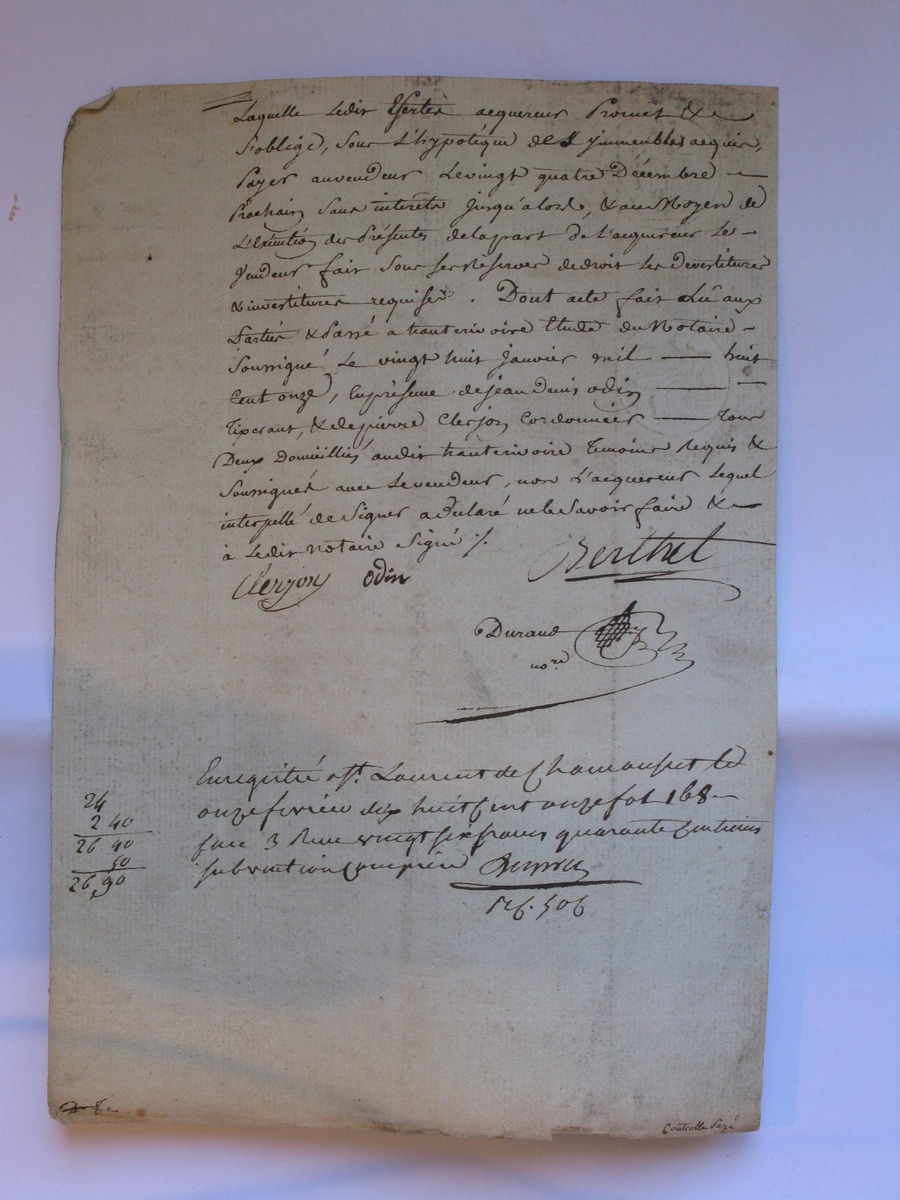 Laquelle Ledit acquereur Promet &
S'oblige, sous L'hypotéque des jmmeubles acquis,
Payer auvendeur Levingt quatre Décembre
Prochain sans interets jusqu'alors, & au Moyen de
L'éxécution des Présentes delapart de L'acquereur Le
Vendeur fait sous ses Réserves dedroit Les Devestitures
& investitures requises. Dont acte fait Lu aux
Parties & Passé a hauterivoire Etude du Notaire
Soussigné Le vingt huit janvier mil huit
Cent onze, En présence de jean Denis odin
Tixerant, & de pierre Clerjon Cordonnier tous
Deux Domiciliés audit hauterivoire Temoins Requis &
Soussignés avec Levendeur, non L'acquereur Lequel
interpellé de Signer a Déclaré ne le Savoir faire &
à Ledit Notaire Signé ./.
Clerjon odin Berthet
Durand
nore
Enregistré a St. Laurent de Chamousset le
onze fevrier dix huit Cent onze fol 168
face 3 Recu vingt six francs quarante Centimes
subvention Comprise
24
2 40
26 40
50
26,90
Controlle Payé